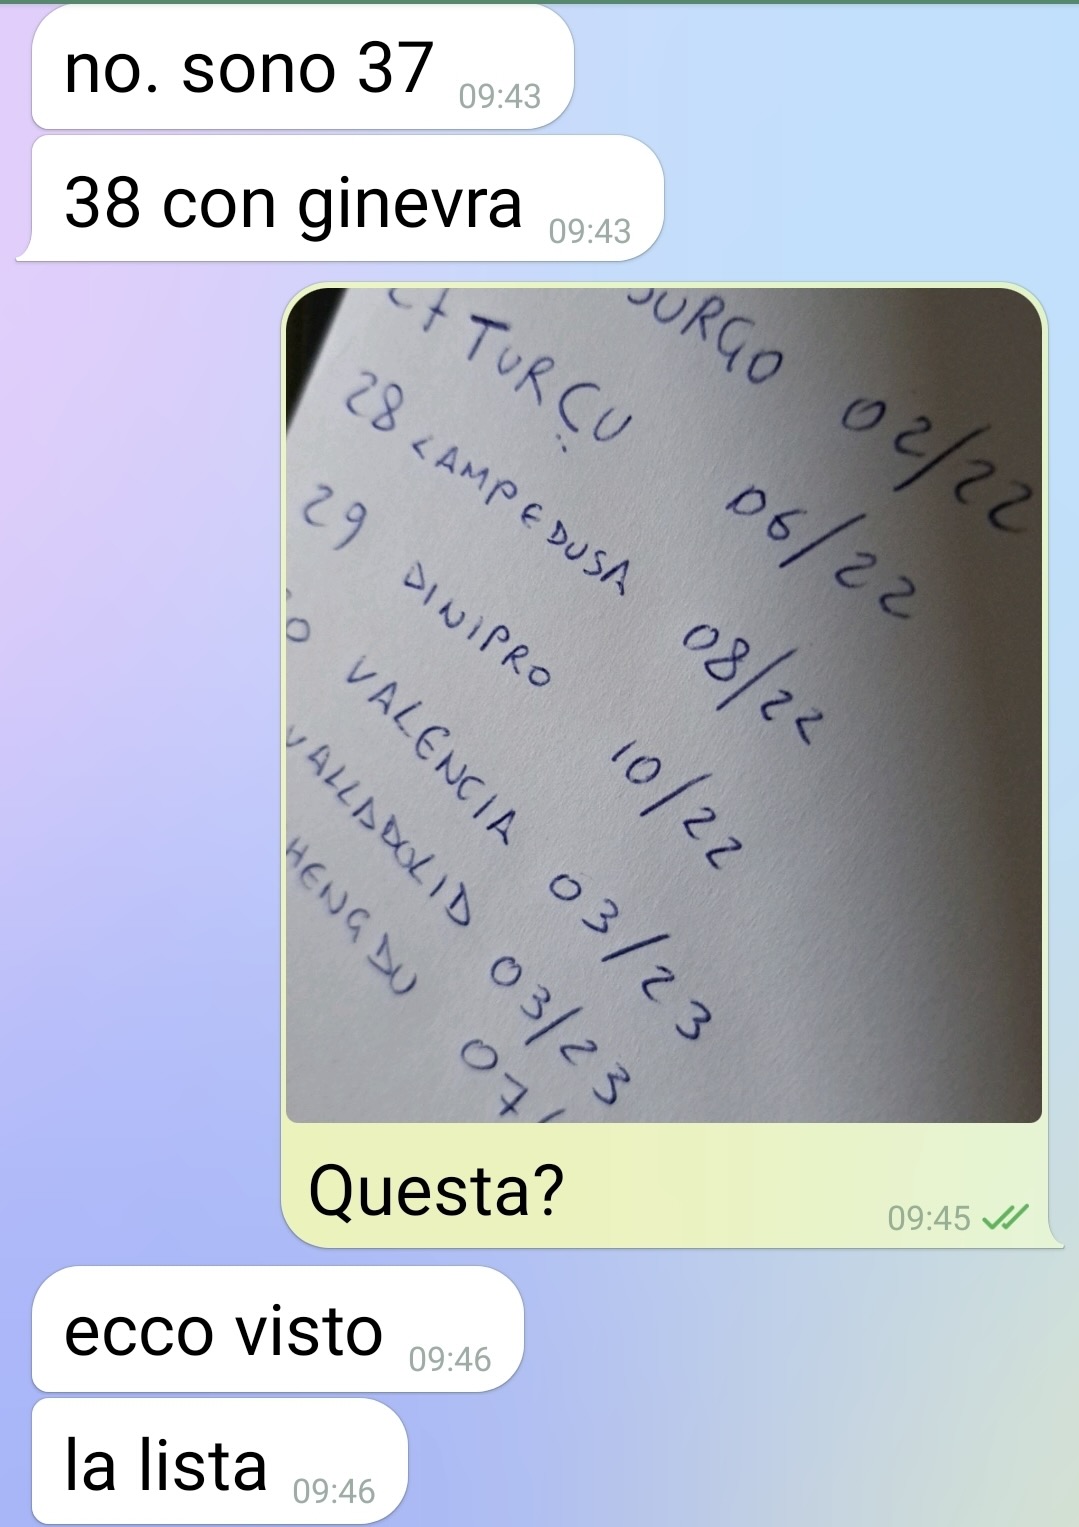 no. sono 37 09:43
38 con ginevra 09:43
URGO 02/22
27 TURÇU 06/22
28 LAMPEDUSA 08/22
29 DINIPRO 10/22
0 VALENCIA 03/23
VALLADOLID 03/23
HENGDU 07/
Questa? 09:45
ecco visto 09:46
la lista 09:46